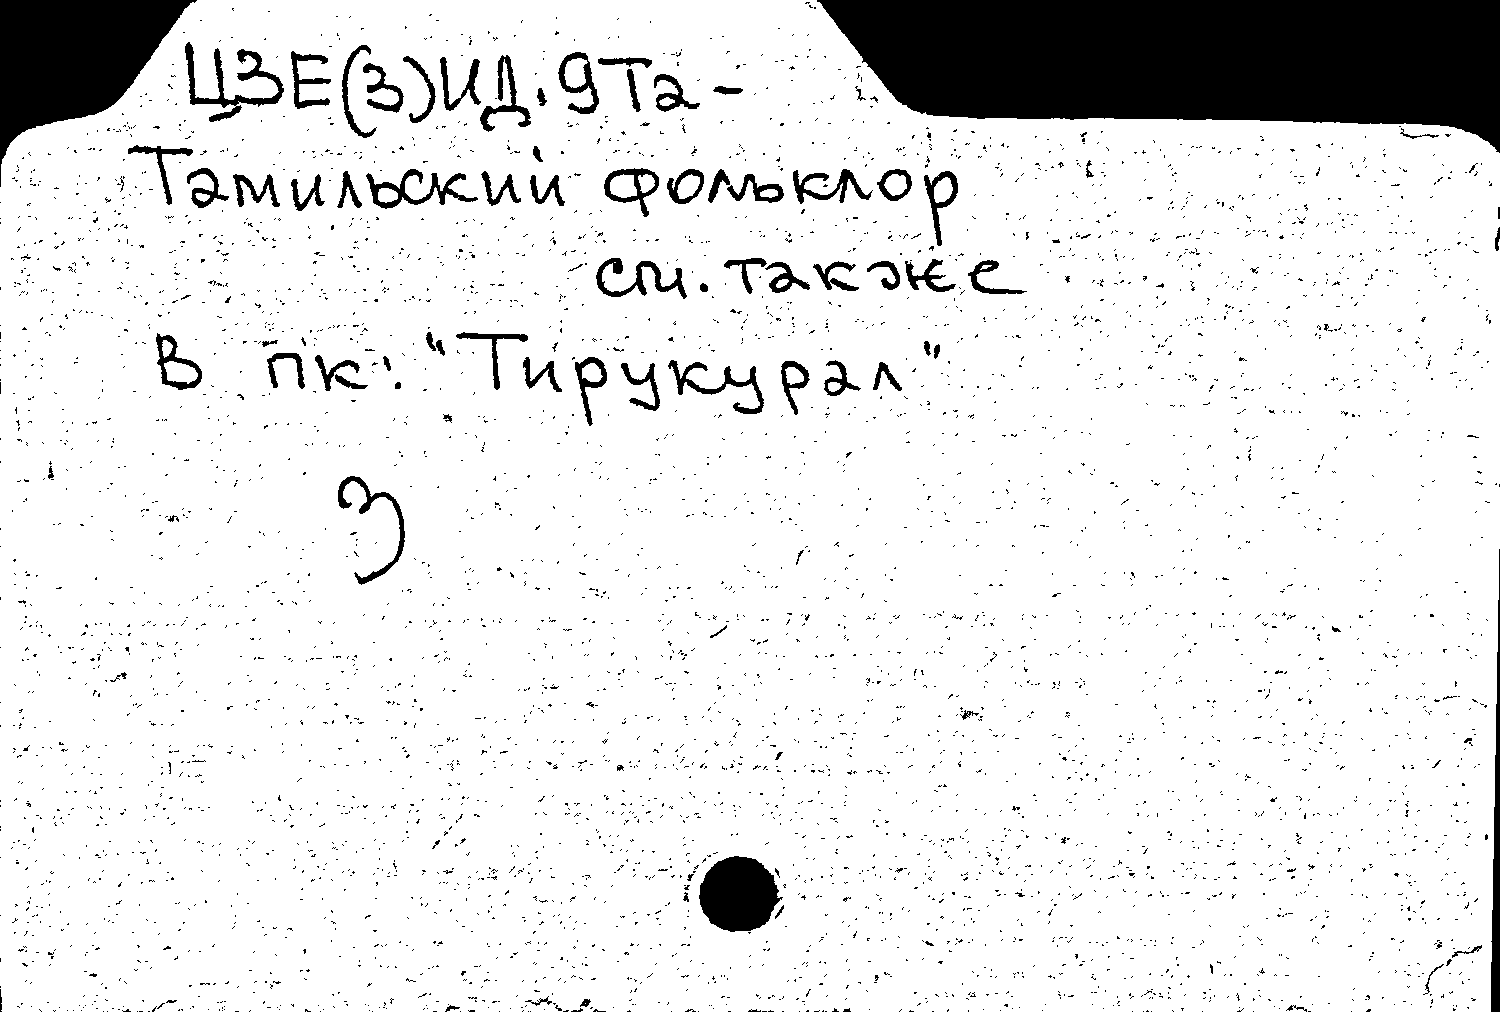 ЦЗЕ(3)ИД.9Та-
Тамильский фольклор
см. также
В пк: "Тирукурал"
3